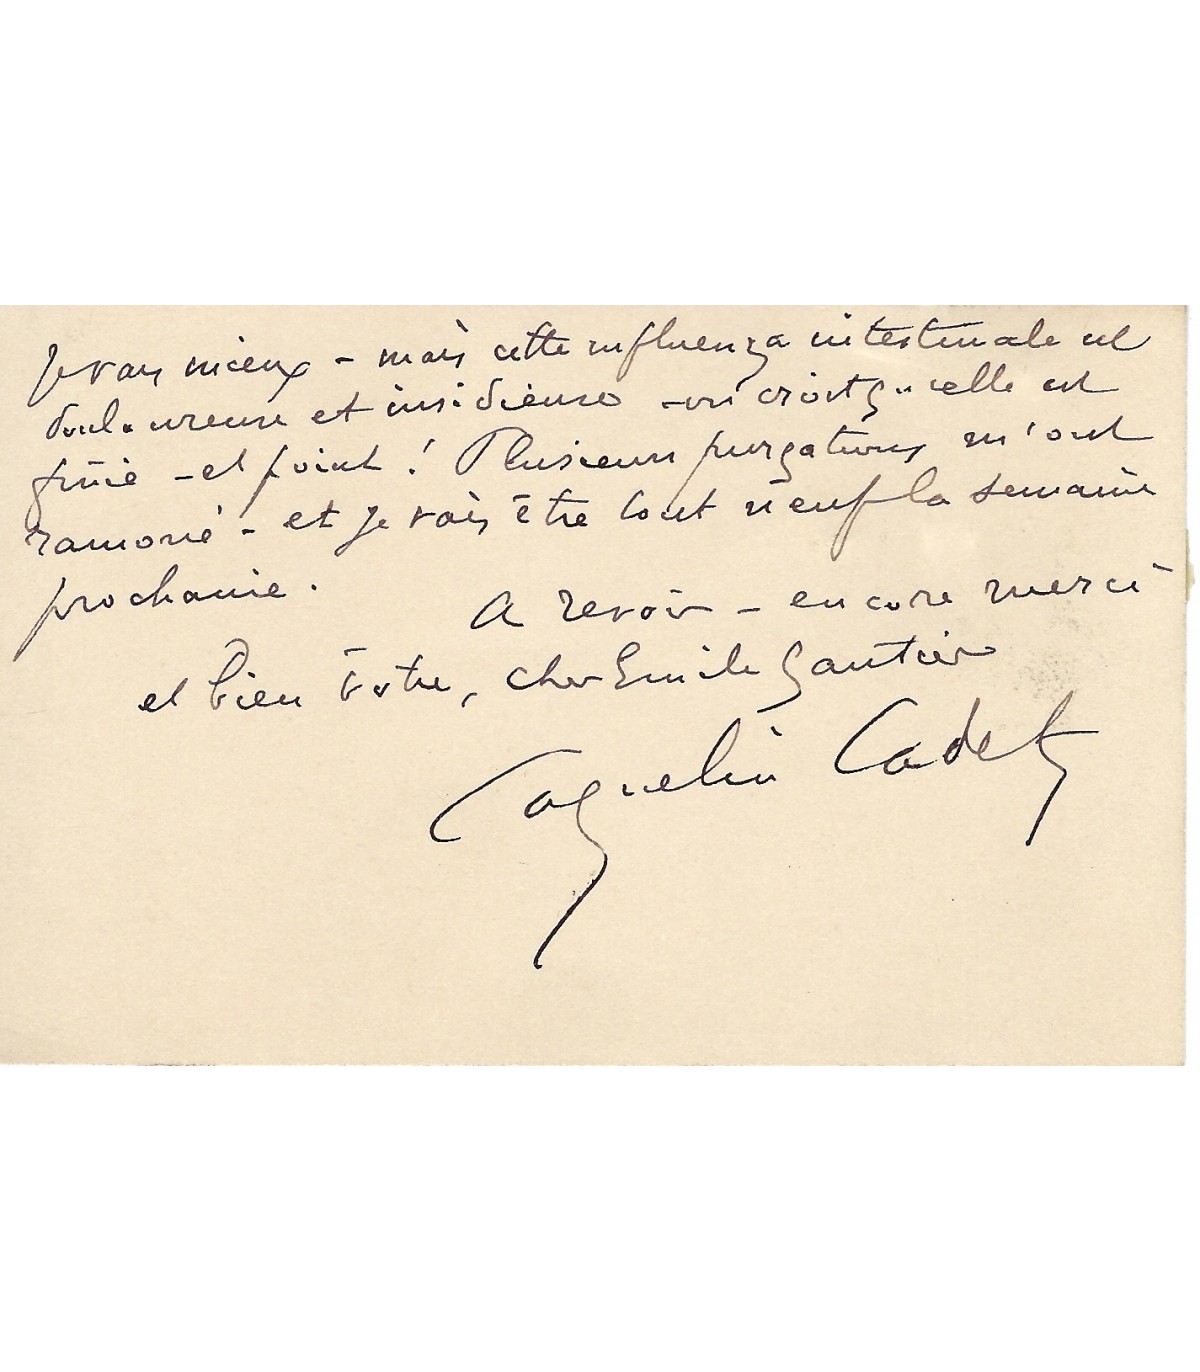 Je vais mieux – mais cette influenza intestinale est
douloureuse et insidieuse – on croit qu'elle est
finie – et point ! Plusieurs purgations m'ont
ramoné – et je vais être tout neuf la semaine
prochaine.
A revoir – encore merci
et bien vôtre, cher Emile Gautier
Coquelin Cadet